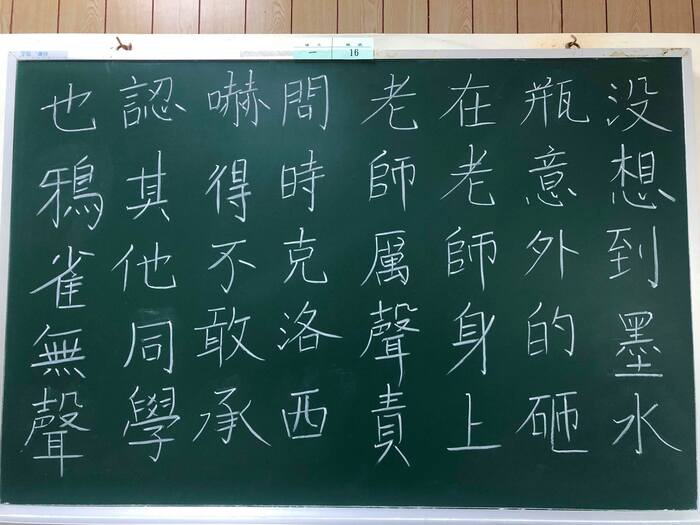 一 16
没想到墨水
瓶意外的砸
在老師身上
老師厲聲責
問時克洛西
嚇得不敢承
認其他同學
也鴉雀無聲